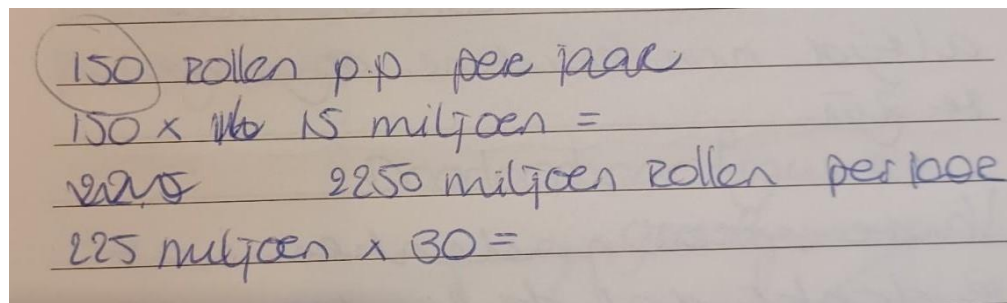 150 rollen p.p per jaar
150 x 15 miljoen =
2250 miljoen rollen per jaar
225 miljoen x 30 =